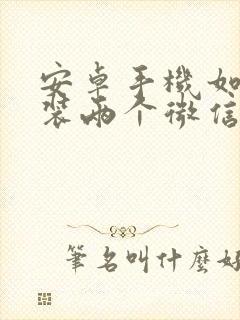 安卓手機如
裝兩个微信
筆名叫什麼好